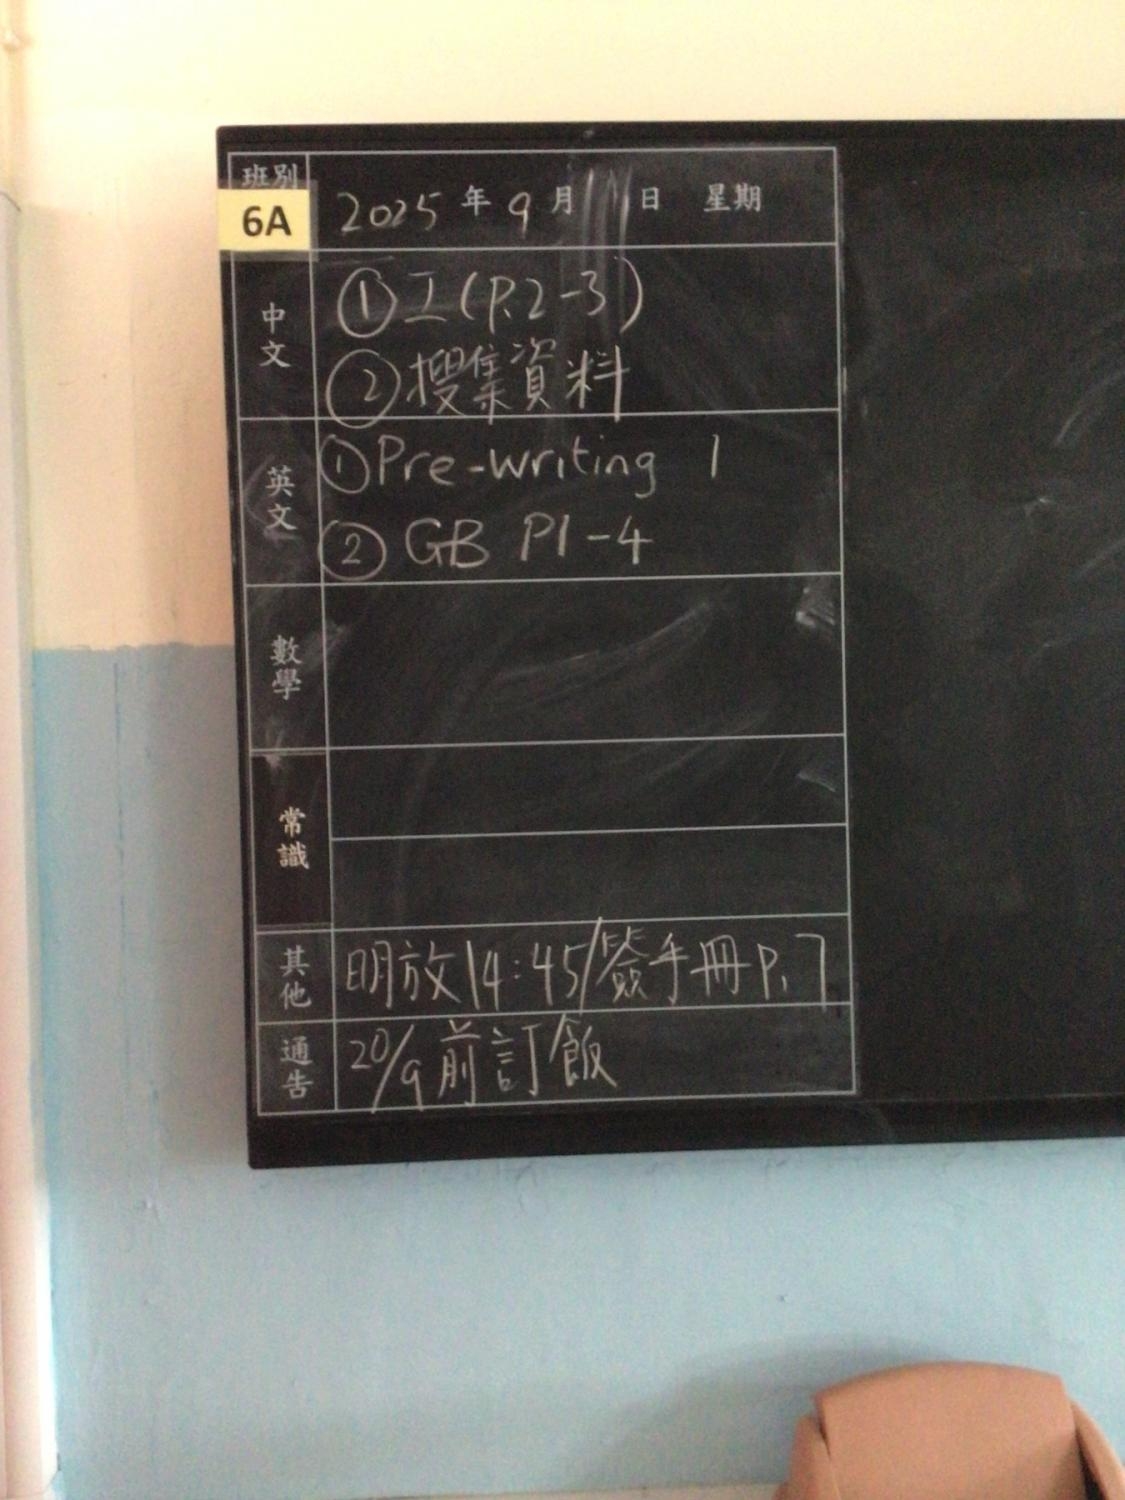 班別
6A
2025年9月 日 星期
中文
①工(P.2-3)
②搜集資料
英文
①Pre-writing 1
②GB P1-4
數學
常識
其他
明放14:45/簽手冊P.7
通告
20/9前訂飯